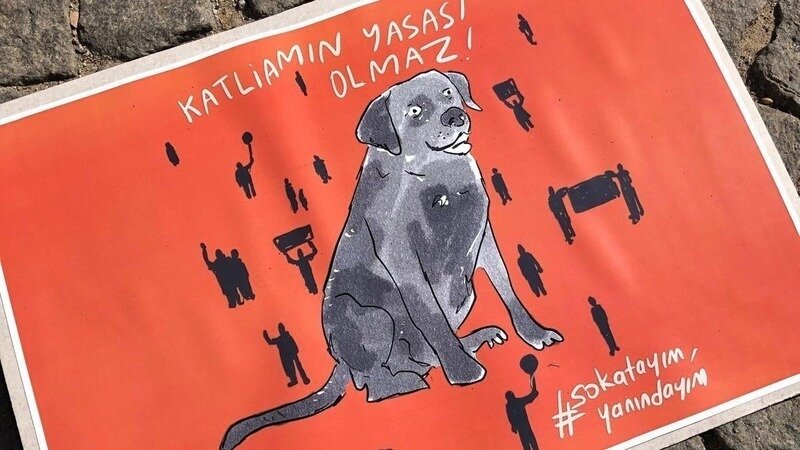 KATLİAMIN YASASI
OLMAZ!
#sokatayım,
yanındayım